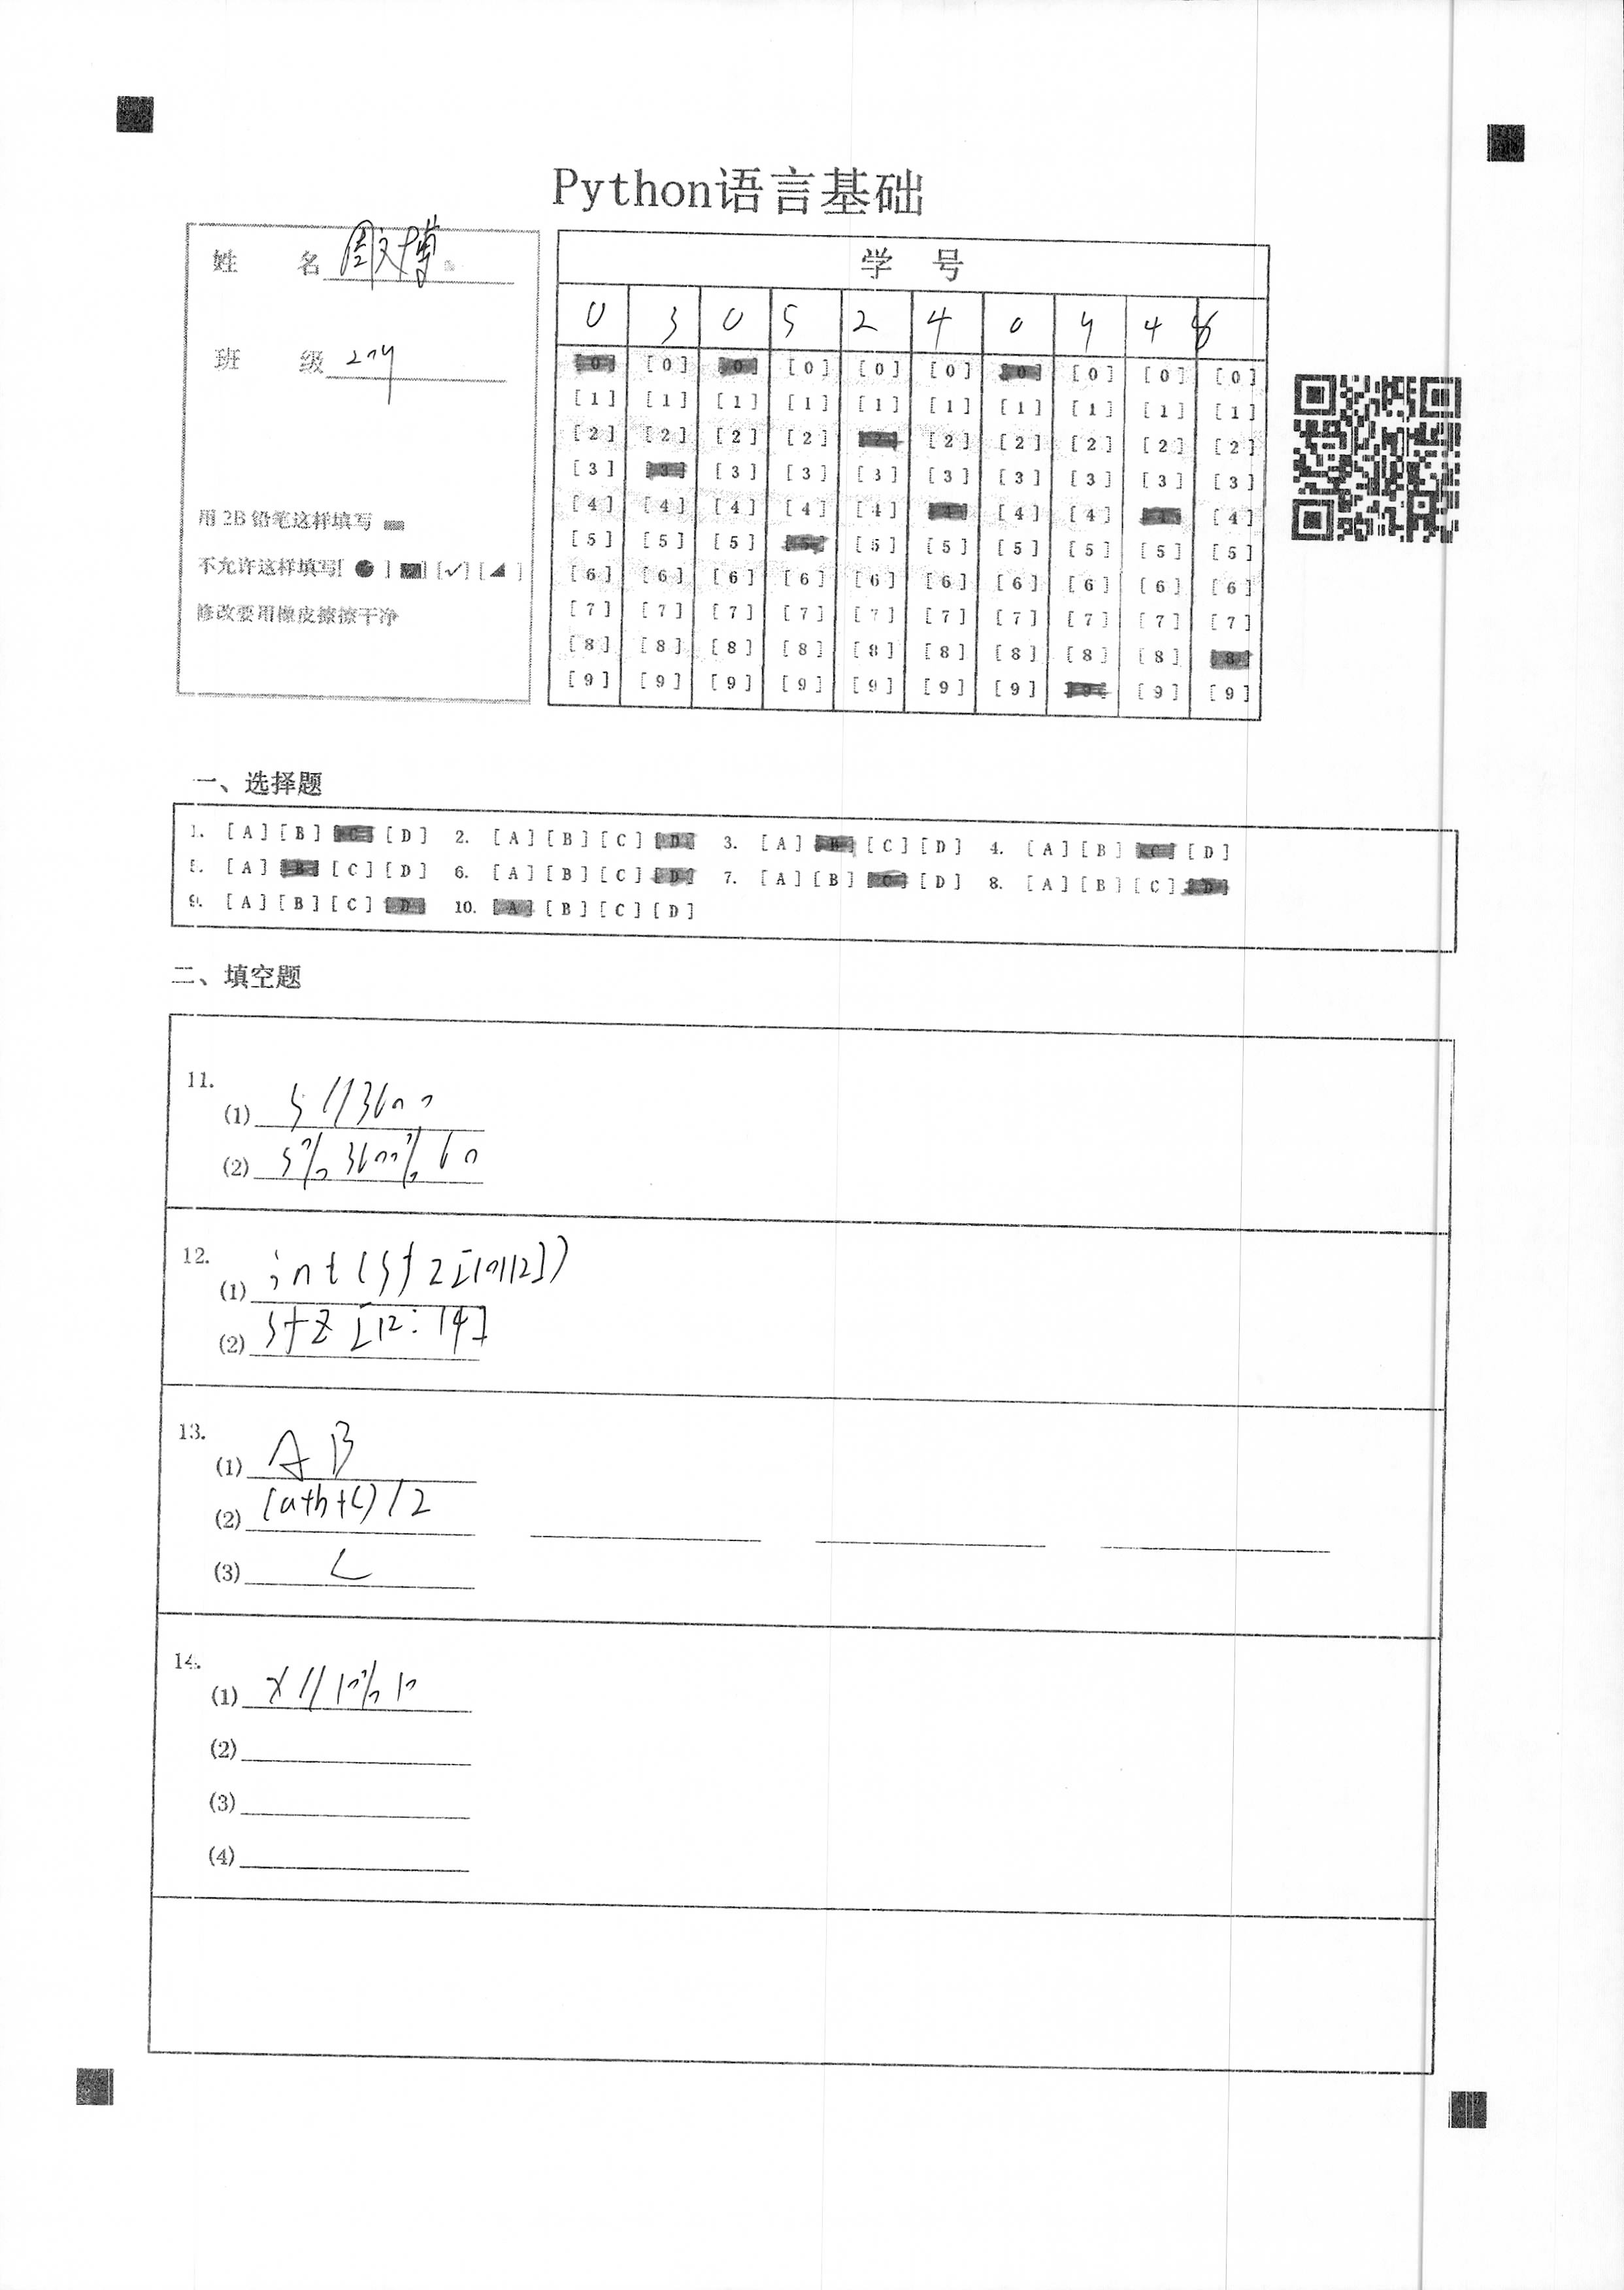 Python语言基础
姓 名 周文博
班 级 209
用 2B 铅笔这样填写
不允许这样填写[ ● ] [■] [✓] [◢ ]
修改要用橡皮擦擦干净
学 号
0 3 0 5 2 4 0 9 4 8
[0] [0] [0] [0] [0] [0] [0] [0] [0] [0]
[1] [1] [1] [1] [1] [1] [1] [1] [1] [1]
[2] [2] [2] [2] [2] [2] [2] [2] [2] [2]
[3] [3] [3] [3] [3] [3] [3] [3] [3] [3]
[4] [4] [4] [4] [4] [4] [4] [4] [4] [4]
[5] [5] [5] [5] [5] [5] [5] [5] [5] [5]
[6] [6] [6] [6] [6] [6] [6] [6] [6] [6]
[7] [7] [7] [7] [7] [7] [7] [7] [7] [7]
[8] [8] [8] [8] [8] [8] [8] [8] [8] [8]
[9] [9] [9] [9] [9] [9] [9] [9] [9] [9]
一、选择题
1. [A] [B] [C] [D] 2. [A] [B] [C] [D] 3. [A] [B] [C] [D] 4. [A] [B] [C] [D]
5. [A] [B] [C] [D] 6. [A] [B] [C] [D] 7. [A] [B] [C] [D] 8. [A] [B] [C] [D]
9. [A] [B] [C] [D] 10. [A] [B] [C] [D]
二、填空题
11.
(1) s//3600
(2) s%3600%60
12.
(1) int(sfz[10:12])
(2) sfz[12:14]
13.
(1) A B
(2) (a+b+c)/2
(3) C
14.
(1) x//10%10
(2)
(3)
(4)